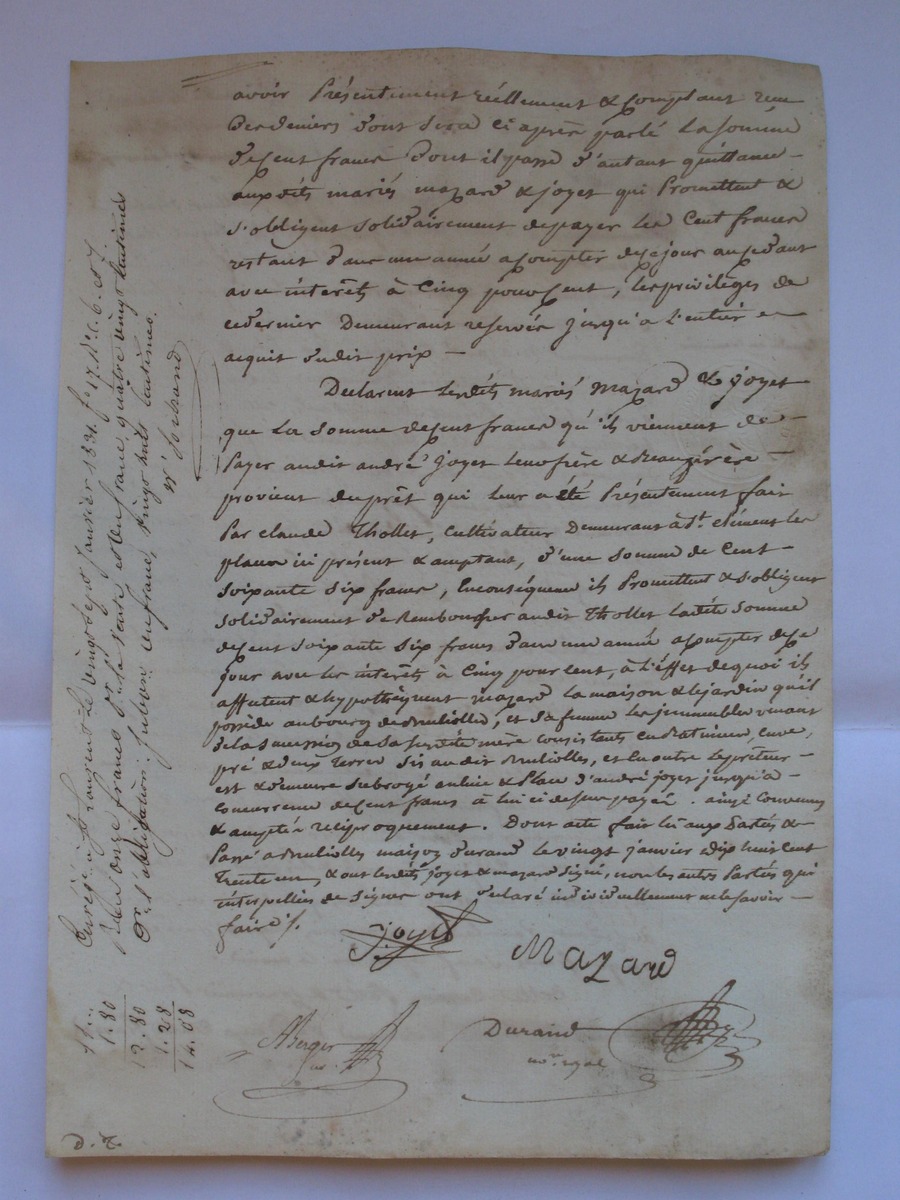 avoir Présentement réellement & Comptant reçu
des deniers dont Sera ci après parlé La Somme
de Cent francs dont il passe d'autant quittance
aux dits mariés mazard & joyet qui Promettent &
s'obligent solidairement de payer les Cent francs
restant dans une année a compter de ce jour au susdit
avec intérêts à Cinq pour Cent, les privilèges de
ce dernier Demeurant réservés jusqu'a l'entier
acquit du dit prix —
Déclarent lesdits mariés Mazard & joyet
que La Somme de Cent francs qu'ils viennent de
Payer au dit andré joyet leur frère & Beaufrère
provient du prêt qui leur a été Présentement fait
Par claude Thollet, Cultivateur Demeurant à St. clément les
places ici présent & acceptant, d'une somme de Cent
soixante six francs, En conséquence ils Promettent & s'obligent
solidairement de Rembourser au dit Thollet la dite Somme
de Cent soixante six francs dans une année a Compter de ce
jour avec les intérêts à Cinq pour Cent, à l'effet de quoi ils
affectent & hypothèquent mazard la maison & le jardin qu'il
possède au bourg de Brullioles, et sa femme les immeubles venant
de la succession de sa mère Consistants en Batiment, cuve,
pré & deux Terres sis au dit Brullioles, et En outre le prêteur
est & demeure subrogé au lieu & Place d'andré joyet jusqu'a
Concurrence de Cent francs à lui ci dessus payés. ainsi Convenus
& accepté réciproquement. Dont acte fait lu aux Partiés &
Passé a Brullioles maison Durand Le vingt janvier dix huit Cent
Trente un, & ont les dits joyet & mazard Signé, non les autres Partiés qui
interpellés de Signer ont déclaré individuellement ne le savoir
faire /.
joyet
Mazard
ABerger
Durand
nore. royal
Enregé. à St. Laurent Le vingt sept janvier 1831. fo. 17. Ro. C. 6. et 7.
Reçu onze francs pr. la vente, et un franc quatre vingt Centimes
pr. l'obligation: Subvon. un franc, vingt huit Centimes.
11. "
1. 80
12. 80
1. 28
14. 08
D. T.